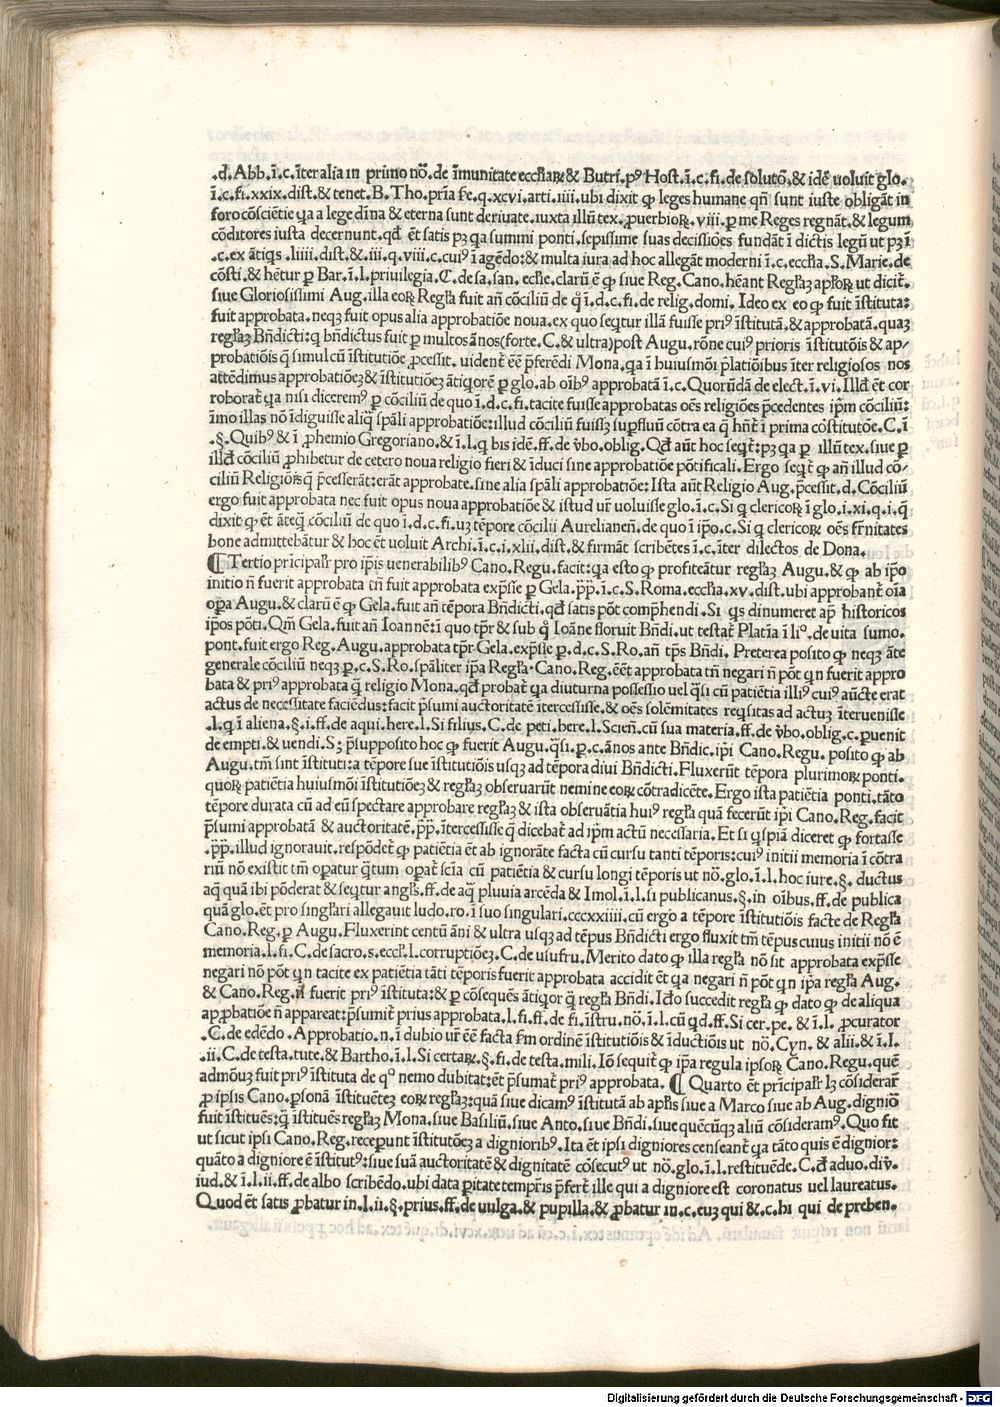 .d̄. Abb. ī.c. īter alia in primo nō̄. de īmunitate eccl̄iaꝝ & Butrī. pꝰ Host. ī.c.fi. de solutō̄. & idē uoluit glo.
ī.c.fi.xxix.dist.& tenet.B.Tho.pr̄ia se.q.xcvi.arti.iiii.ubi dixit ꝙ leges humane qn̄ sunt iuste obligāt in
foro cōsciētie ꝗa a lege dīna & eterna sunt deriuate.iuxta illū tex.ꝓuerbioꝝ.viii.ꝑ me Reges regnāt.& legum
cōditores iusta decernunt.qd̄ ēt satis pꝫ ꝗa summi ponti.sepissime suas decissiōes fundāt ī dictis legū ut pꝫ ī
.c.ex ātiqs.liiii.dist.& iii.q.viii.c.cuiꝰ ī agēdo:& multa iura ad hoc allegāt moderni ī.c.eccl̄ia.S.Marie.de
cōsti.& hētur ꝑ Bar.ī.l.priuilegia.C.de sa.san.eccl̄ie.clarū ē ꝙ siue Reg.Cano.hēant Regl̄aꝫ apl̄oꝝ ut dicit̄.
siue Gloriosissimi Aug.illa eoꝝ Regl̄a fuit an̄ cōciliū de q̊ ī.d.c.fi.de relig.domi.Ideo ex eo ꝙ fuit īstituta:
fuit approbata.neqꝫ fuit opus alia approbatiōe noua.ex quo seqtur illā fuisse priꝰ īstitutā.& approbatā.quaꝫ
regl̄aꝫ Bn̄dicti:q bn̄dictus fuit ꝑ multos ānos(forte.C.& ultra)post Augu.rōne cuiꝰ prioris īstitutōis & ap/
probatiōis q̄ simul cū īstitutiōe ꝓcessit.uident̄ eē p̄ferēdi Mona.ꝗa ī huiusmōi p̄latiōibus īter religiosos nos
attēdimus approbatiōeꝫ & īstitutiōeꝫ ātiqorē ꝑ glo.ab oībꝰ approbatā ī.c.Quorūdā de elect.ī.vi.Illd̄ ēt cor
roborat̄ ꝗa nisi diceremꝰ ꝑ cōciliū de quo ī.d.c.fi.tacite fuisse approbatas oēs religiōes p̄cedentes ip̄m cōciliū:
īmo illas nō īdiguisse aliq̄ spāli approbatiōe:illud cōciliū fuissꝫ suꝑfluū cōtra ea q̄ hn̄t̄ ī prima cōstitutōe.C.ī
.§.Quibꝰ & ī ꝓhemio Gregoriano.& ī.l.q bis idē.ff.de v̄bo.oblig.Qd̄ aūt hoc seqt̄:pꝫ ꝗa ꝑ illū tex.siue ꝑ
illd̄ cōciliū ꝓhibetur de cetero noua religio fieri & īduci sine approbatiōe pōtificali.Ergo seqt̄ ꝙ an̄ illud cō/
ciliū Religiōes q̄ p̄cesserāt:erāt approbate.sine alia spāli approbatiōe:Ista aūt Religio Aug.p̄cessit.d.Cōciliū
ergo fuit approbata nec fuit opus noua approbatiōe & istud ur̄ uoluisse glo.ī.c.Si q clericoꝝ ī glo.i.xi.q.i.q̄
dixit ꝙ ēt āteq̄ cōciliū de quo ī.d.c.fi.uꝫ tēpore cōcilii Aurelianen̄.de quo ī ip̄o.c.Si q clericoꝝ oēs fr̄nitates
bone admittebātur & hoc ēt uoluit Archi.ī.c.i.xlii.dist.& firmāt scribētes ī.c.īter dilectos de Dona.
¶ Tertio pr̄icipalr̄ pro ip̄is uenerabilibꝰ Cano.Regu.facit:ꝗa esto ꝙ profiteātur regl̄aꝫ Augu.& ꝙ ab ip̄o
initio n̄ fuerit approbata tn̄ fuit approbata exp̄sse ꝑ Gela.p̄p̄.ī.c.S.Roma.eccl̄ia.xv.dist.ubi approbant̄ oīa
oꝑa Augu.& clarū ē ꝙ Gela.fuit an̄ tēpora Bn̄dicti.qd̄ satis pōt comp̄hendi.Si qs dinumeret ap̄ historicos
ip̄os pōti.Qm̄ Gela.fuit an̄ Ioannē:ī quo tp̄r & sub q̊ Ioāne floruit Bn̄di.ut testat̄ Platīa ī liº.de uita sumo.
pont.fuit ergo Reg.Augu.approbata tp̄r Gela.exp̄sse ꝑ.d.c.S.Ro.an̄ tp̄s Bn̄di.Preterea posito ꝙ neqꝫ āte
generale cōciliū neqꝫ ꝑ.c.S.Ro.spāliter ip̄a Regl̄a.Cano.Reg.eēt approbata tn̄ negari n̄ pōt qn fuerit appro
bata & priꝰ approbata q̄ religio Mona.qd̄ probat̄ ꝗa diuturna possessio uel q̄si cū patiētia illiꝰ cuiꝰ aūcte erat
actus de necessitate faciēdus:facit p̄sumi auctoritatē ītercessisse.& oēs solēmitates reqsitas ad actuꝫ īteruenisse
.l.q ī aliena.§.i.ff.de aqui.here.l.Si filius.C.de peti.here.l.Scien̄.cū sua materia.ff.de v̄bo.oblig.c.ꝑuenit
de empti.& uendi.Sꝫ p̄supposito hoc ꝙ fuerit Augu.q̄si.ꝑ.c.ānos ante Bn̄dic.ip̄i Cano.Regu.posito ꝙ ab
Augu.tm̄ sint īstituti:a tēpore sue īstitutiōis usqꝫ ad tēpora diui Bn̄dicti.Fluxerūt tēpora plurimoꝝ ponti.
quoꝝ patiētia huiusmōi īstitutiōeꝫ & regl̄aꝫ obseruarūt nemine eoꝝ cōtradicēte.Ergo ista patiētia ponti.tāto
tēpore durata cū ad eū spectare approbare regl̄aꝫ & ista obseruātia huiꝰ regl̄a quā fecerūt ip̄i Cano.Reg.facit
p̄sumi approbatā & auctoritatē.p̄p̄.ītercessisse q̄ dicebat̄ ad ip̄m actū necessaria.Et si qspiā diceret ꝙ fortasse
.p̄p̄.illud ignorauit.respōdet̄ ꝙ patiētia ēt ab ignorāte facta cū cursu tanti tēporis:cuiꝰ initii memoria ī cōtra
riū nō existit tm̄ oꝑatur q̄tum oꝑat̄ scīa cū patiētia & cursu longi tēporis ut nō̄.glo.ī.l.hoc iure.§.ductus
aq̄ quā ibi pōderat & seqtur angl̄s.ff.de aq̄ pluuia arcēda & Imol.ī.l.si publicanus.§.in oībus.ff.de publica
quā glo.ēt pro singl̄ari allegauit ludo.ro.ī suo singulari.ccccxxiiii.cū ergo a tēpore īstitutiōis facte de Regl̄a
Cano.Reg.ꝑ Augu.Fluxerint centū āni & ultra usqꝫ ad tēpus Bn̄dicti ergo fluxit tm̄ tēpus cuius initii nō ē
memoria.l.fi.C.de sacro.s.eccl̄.l.corruptiōeꝫ.C.de usufru.Merito dato ꝙ illa regl̄a nō sit approbata exp̄sse
negari nō pōt qn tacite ex patiētia tāti tēporis fuerit approbata accidit ēt ꝗa negari n̄ pōt qn ip̄a regl̄a Aug.
& Cano.Reg.n̄ fuerit priꝰ īstituta:& ꝑ cōsequēs ātiqor q̄ regl̄a Bn̄di.Ictō succedit regl̄a ꝙ dato ꝙ de aliqua
apꝓbatiōe n̄ appareat:p̄sumit̄ prius approbata.l.fi.ff.de fi.īstru.nō̄.ī.l.cū qd̄.ff.Si cer.pe.& ī.l.ꝓcurator
.C.de edēdo.Approbatio.n.ī dubio ur̄ eē facta s̄m ordinē īstitutiōis & īductiōis ut nō̄.Cyn.& alii.& ī.l.
.ii.C.de testa.tute.& Bartho.ī.l.Si certaꝝ.§.fi.de testa.mili.Iō sequit̄ ꝙ ip̄a regula ipsoꝝ Cano.Regu.quē
admōuꝫ fuit priꝰ īstituta de qº nemo dubitat:ēt p̄sumat̄ priꝰ approbata. ¶ Quarto ēt pr̄icipalr̄ lꝫ cōsiderar̄
ꝓ ipsis Cano.ꝑsonā īstituēteꝫ eoꝝ regl̄aꝫ:quā siue dicamꝰ īstitutā ab apl̄is siue a Marco siue ab Aug.dignio
fuit īstituēs:q̄ īstituēs regl̄aꝫ Mona.siue Basiliū.siue Anto.siue Bn̄di.siue quēcūqꝫ aliū cōsideramꝰ.Quo fit
ut sicut ipsi Cano.Reg.receꝑunt īstitutōeꝫ a dignioribꝰ.Ita ēt ipsi digniores censeant̄ ꝗa tāto quis ē dignior:
quāto a digniore ē īstitutꝰ:siue suā auctoritatē & dignitatē cōsecutꝰ ut nō̄.glo.ī.l.restituēde.C.d̄ aduo.div̄.
iud.& ī.l.ii.ff.de albo scribēdo.ubi data pitate tempr̄is p̄fert̄ ille qui a digniore est coronatus uel laureatus.
Quod ēt satis ꝓbatur in.l.ii.§.prius.ff.de uulga.& pupilla.& ꝓbatur in.c.euꝫ qui &.c.hi qui de preben.
Digitalisierung gefördert durch die Deutsche Forschungsgemeinschaft - DFG